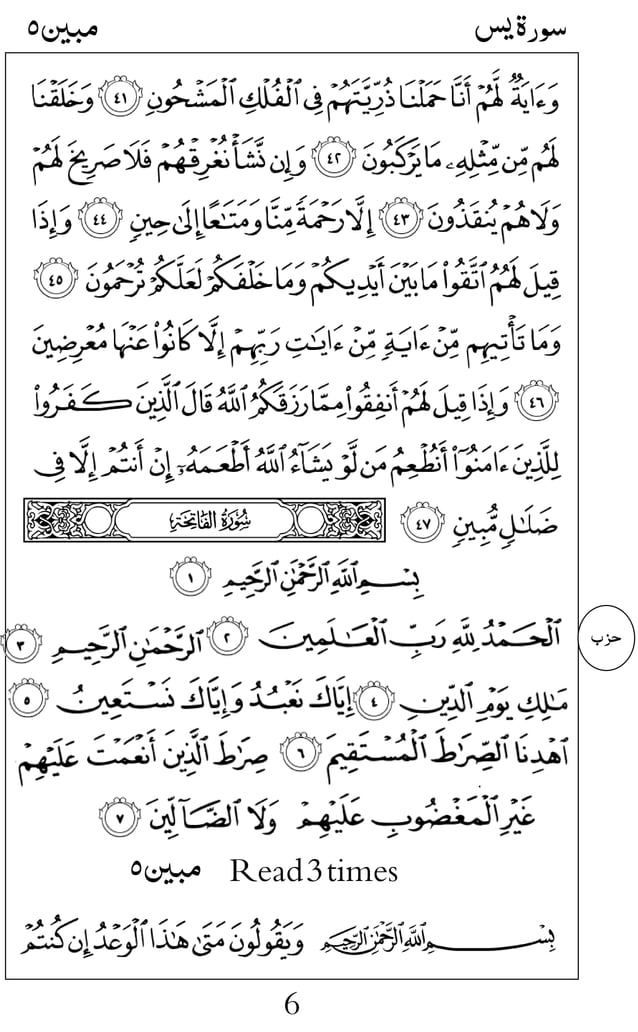 سورة يس مبين ٥
وَءَايَةٌ لَّهُمْ أَنَّا حَمَلْنَا ذُرِّيَّتَهُمْ فِي ٱلْفُلْكِ ٱلْمَشْحُونِ ٤١ وَخَلَقْنَا
لَهُم مِّن مِّثْلِهِۦ مَا يَرْكَبُونَ ٤٢ وَإِن نَّشَأْ نُغْرِقْهُمْ فَلَا صَرِيخَ لَهُمْ
وَلَا هُمْ يُنقَذُونَ ٤٣ إِلَّا رَحْمَةً مِّنَّا وَمَتَـٰعًا إِلَىٰ حِينٍ ٤٤ وَإِذَا
قِيلَ لَهُمُ ٱتَّقُوا۟ مَا بَيْنَ أَيْدِيكُمْ وَمَا خَلْفَكُمْ لَعَلَّكُمْ تُرْحَمُونَ ٤٥
وَمَا تَأْتِيهِم مِّنْ ءَايَةٍ مِّنْ ءَايَـٰتِ رَبِّهِمْ إِلَّا كَانُوا۟ عَنْهَا مُعْرِضِينَ
٤٦ وَإِذَا قِيلَ لَهُمْ أَنفِقُوا۟ مِمَّا رَزَقَكُمُ ٱللَّهُ قَالَ ٱلَّذِينَ كَفَرُوا۟
لِلَّذِينَ ءَامَنُوٓا۟ أَنُطْعِمُ مَن لَّوْ يَشَآءُ ٱللَّهُ أَطْعَمَهُۥٓ إِنْ أَنتُمْ إِلَّا فِي
ضَلَـٰلٍ مُّبِينٍ ٤٧ سُورَةُ الفَاتِحَةِ
بِسْمِ ٱللَّهِ ٱلرَّحْمَـٰنِ ٱلرَّحِيمِ ١
ٱلْحَمْدُ لِلَّهِ رَبِّ ٱلْعَـٰلَمِينَ ٢ ٱلرَّحْمَـٰنِ ٱلرَّحِيمِ ٣
حزب
مَـٰلِكِ يَوْمِ ٱلدِّينِ ٤ إِيَّاكَ نَعْبُدُ وَإِيَّاكَ نَسْتَعِينُ ٥
ٱهْدِنَا ٱلصِّرَٰطَ ٱلْمُسْتَقِيمَ ٦ صِرَٰطَ ٱلَّذِينَ أَنْعَمْتَ عَلَيْهِمْ
غَيْرِ ٱلْمَغْضُوبِ عَلَيْهِمْ وَلَا ٱلضَّآلِّينَ ٧
مبين ٥ Read 3 times
بِسْمِ ٱللَّهِ ٱلرَّحْمَـٰنِ ٱلرَّحِيمِ وَيَقُولُونَ مَتَىٰ هَـٰذَا ٱلْوَعْدُ إِن كُنتُمْ
6